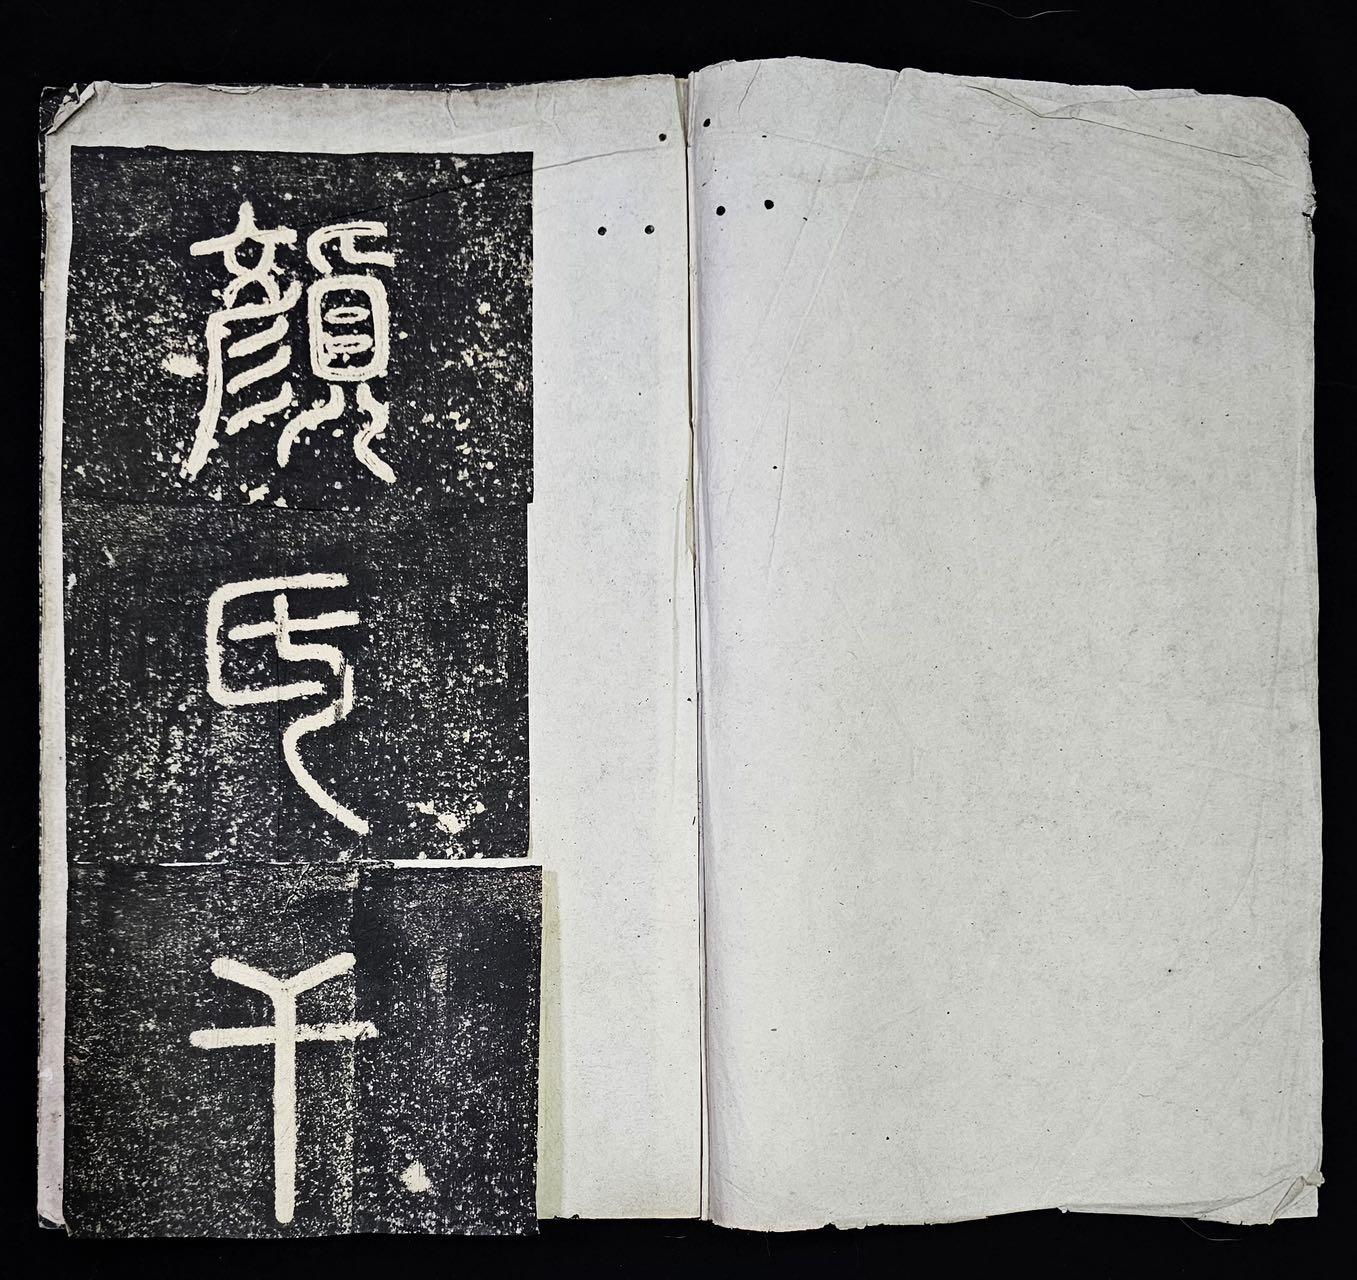 顏氏干